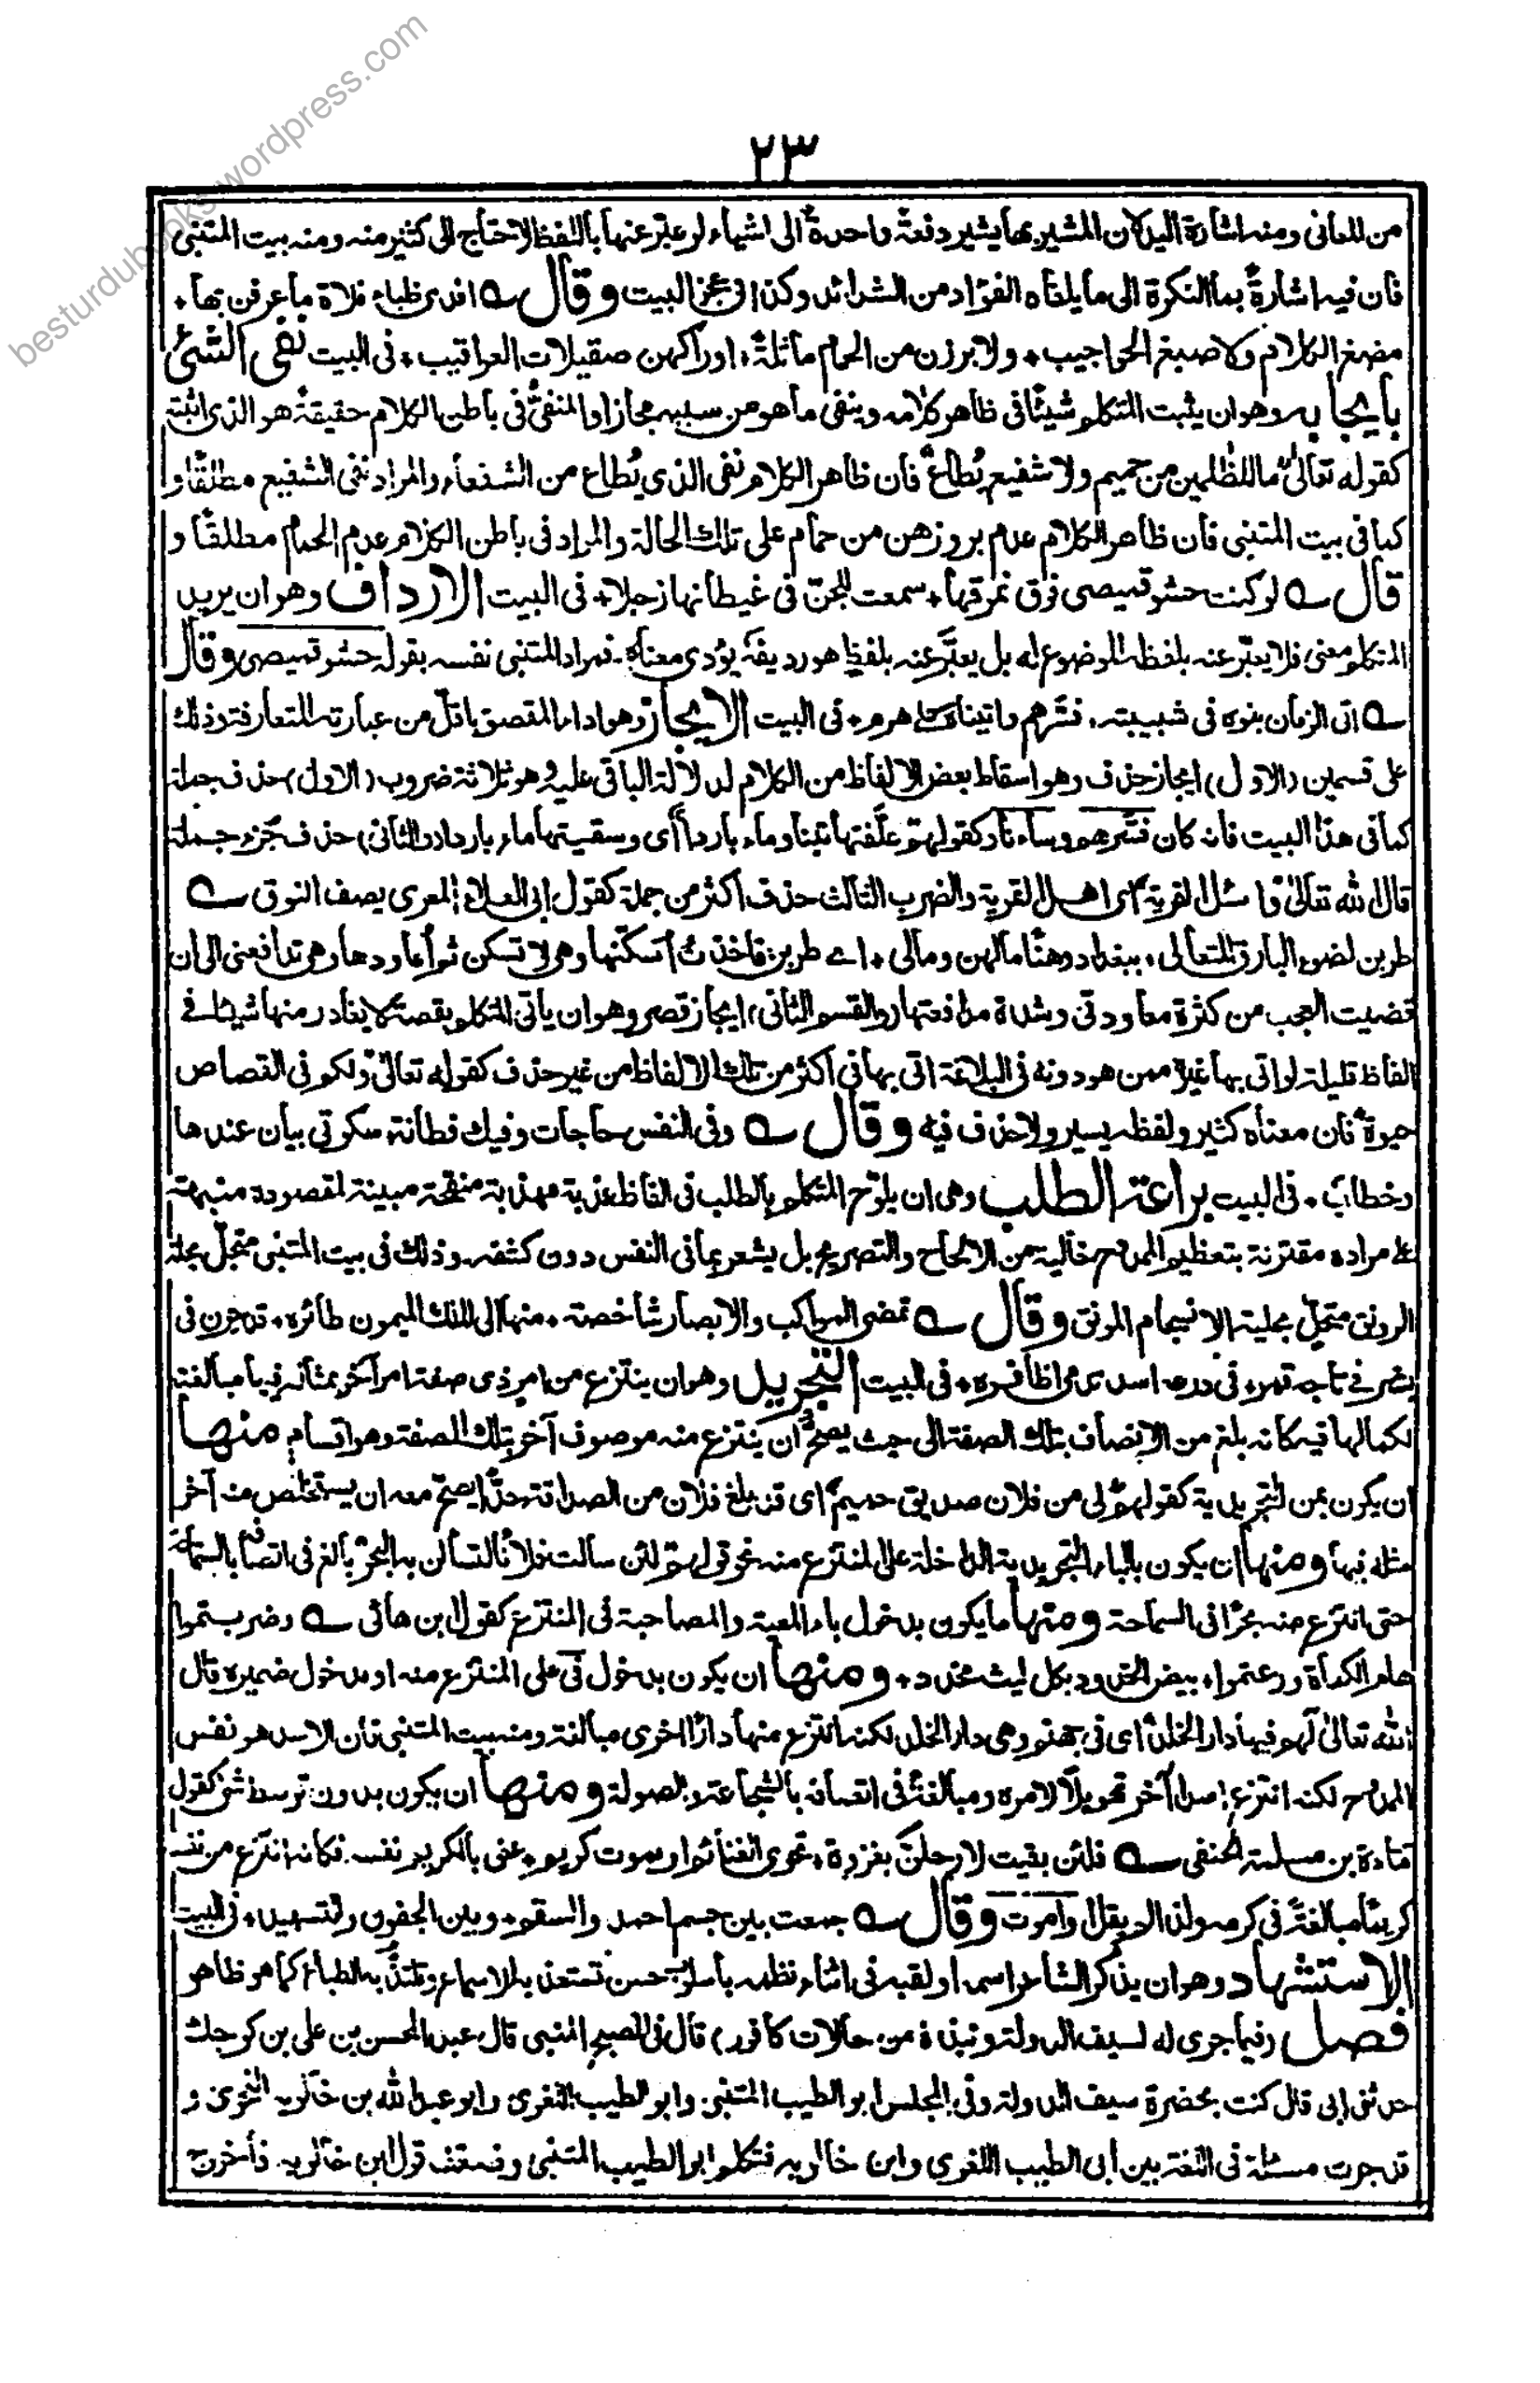 ٢٣
من المعانى ومنه اشارة اليد لان المشير بها يشير دفعة واحدة الى اشياء لو عبّر عنها باللفظ لاحتاج الى كثير منه ومنه بيت المتنبى
فان فيه اشارةً بما النكرة الى ما يلقاه الفؤاد من الشدائد وكذا فى عجز البيت وقال ؎ افدى ظباء فلاة ما عرفن بها ٭
مضغ الكلام ولا صبغ الحواجيب ٭ ولا برزن من الحمام ماثلةً ٭ اوراكهن صقيلات العراقيب ٭ فى البيت نفى الشئ
بايجابه وهو ان يثبت المتكلم شيئًا فى ظاهر كلامه وينفى ما هو من سببه مجازا والمنفىّ فى باطن الكلام حقيقةً هو الذى اثبته
كقوله تعالىٰ ما للظٰلمين من حميم ولا شفيع يُطاع فان ظاهر الكلام نفى الذى يُطاع من الشفعاء والمراد نفى الشفيع مطلقًا و
كما فى بيت المتنبى فان ظاهر الكلام عدم بروزهن من حمام على تلك الحالة والمراد فى باطن الكلام عدم الحمام مطلقًا و
قال ؎ لو كنت حشو قميصى فوق نمرقها ٭ سمعت للجنّ فى غيطانها زجلا ٭ فى البيت الارداف وهو ان يريد
المتكلم معنى فلا يعبّر عنه بلفظه الموضوع له بل يعبّر عنه بلفظٍ هو رديفه يؤدى معناه ۔ فمراد المتنبى نفسه بقوله حشو قميصى وقال
؎ اتى الزمان بنوه فى شبيبته ٭ فسّرهم واتيناه على هرم ٭ فى البيت الايجاز وهو اداء المقصود باقلّ من عبارته المتعارفة وذلك
على قسمين (الاول) ايجاز حذف وهو اسقاط بعض الالفاظ من الكلام لدلالة الباقى عليه وهو ثلاثة ضروب (الاول) حذف جملة
كما فى هذا البيت فانه كان فسّرهم وساءنا وكقولهم علّفتها تبنا وماء باردا أى وسقيتها ماء باردا (والثانى) حذف جزء جملة
قال الله تعالىٰ واسئل القرية أى اهل القرية والضرب الثالث حذف اكثر من جملة كقول ابى العلاء المعرى يصف النوق ؎
طربن لضوء البارق المتعالى ٭ ببغداد وهنًا ما لهن ومالى ٭ اے طربن فاخذتُ اُسكّنها وهى لا تسكن ثم أعاودها وهى تدافعنى الى ان
قضيت العجب من كثرة معاودتى وشدة مدافعتها (والقسم الثانى) ايجاز قصر وهو ان ياتى المتكلم بقصة لا يغادر منها شيئا فے
الفاظ قليلة لو اتى بها غيره ممن هو دونه فى البلاغة اتى بها فى اكثر من تلك الالفاظ من غير حذف كقوله تعالىٰ ولكم فى القصاص
حيوة فان معناه كثير ولفظه يسير ولا حذف فيه وقال ؎ وفى النفس حاجات وفيك فطانة ٭ سكوتى بيان عندها
وخطاب ٭ فى البيت براعة الطلب وهى ان يلوّح المتكلم بالطلب فى الفاظ عذبة مهذبة منقحة مبينة لمقصوده منبهة
على مراده مقترنة بتعظيم الممدوح خالية من الالحاح والتصريح بل يشعر بما فى النفس دون كشفه وذلك فى بيت المتنبى متجلّ بحلة
الرونق متحلّ بحلية الانسجام المونق وقال ؎ تمضى المواكب والابصار شاخصة ٭ منها الى الملك الميمون طائره ٭ قد حرن فى
بشر فے تاجه قمر ٭ فى درعه اسد تدمى اظافره ٭ فى البيت التجريد وهو ان ينتزع من امر ذى صفة امر آخر بمثاله فيها مبالغة
لكمالها فيه كانه بلغ من الاتصاف بتلك الصفة الى حيث يصح ان ينتزع منه موصوف آخر بتلك الصفة وهو اقسام منها
ان يكون بمن التجريدية كقولهم لى من فلان صديق حميم اى قد بلغ فلان من الصداقة حدًّا يصح معه ان يستخلص منه آخر
مثله فيها ومنها ان يكون بالباء التجريدية الداخلة على المنتزع منه نحو قولهم لئن سالت فلانًا لتسألن به البحر بالغ فى اتصافه بالسماحة
حتى انتزع منه بحرًا فى السماحة ومنها ما يكون بدخول باء المعية والمصاحبة فى المنتزع كقول ابن هانى ؎ وضربتموا
هام الكماة ورعتموا ٭ بيض الخدود بكل ليث مخدر ٭ ومنها ان يكون بدخول فى على المنتزع منه او مدخول ضميره قال
الله تعالىٰ لهم فيها دار الخلد اى فى جهنم وهى دار الخلد لكنه انتزع منها دارًا اخرى مبالغة ومنه بيت المتنبى فان الاسد هو نفس
الممدوح لكنه انتزع اسدا آخر تهويلًا لامره ومبالغةً فى اتصافه بالشجاعة والصولة ومنها ان يكون بدون توسط شئ كقول
قتادة بن مسلمة الحنفى ؎ فلئن بقيت لارحلنّ بغزوة ٭ تحوى الغنائم او يموت كريم ٭ عنى بالكريم نفسه فكانه انتزع من نفسه
كريمًا مبالغةً فى كرمه ولذا لم يقل واموت وقال ؎ جمعت بين جسم احمد والسقم ٭ وبين الجفون والتسهيد ٭ فى البيت
الاستشهاد وهو ان يذكر الشاعر اسمه او لقبه فى اثناء نظمه باسلوب حسن تستعذ به الاسماع وتلتذّ به الطباع كما هو ظاهر
فصل (فيما جرى له لسيف الدولة ونبذة من حالات كافور) قال فى الصبح المنبى قال عبد المحسن بن على بن كوجك
حدثنى ابى قال كنت بحضرة سيف الدولة وفى المجلس ابو الطيب المتنبى وابو الطيب اللغوى وابو عبد الله بن خالويه النحوى و
قد جرت مسئلة فى اللغة بين ابى الطيب اللغوى وابن خالويه فتكلم ابو الطيب المتنبى وضعف قول ابن خالويه فأخرج
besturdubooks.wordpress.com